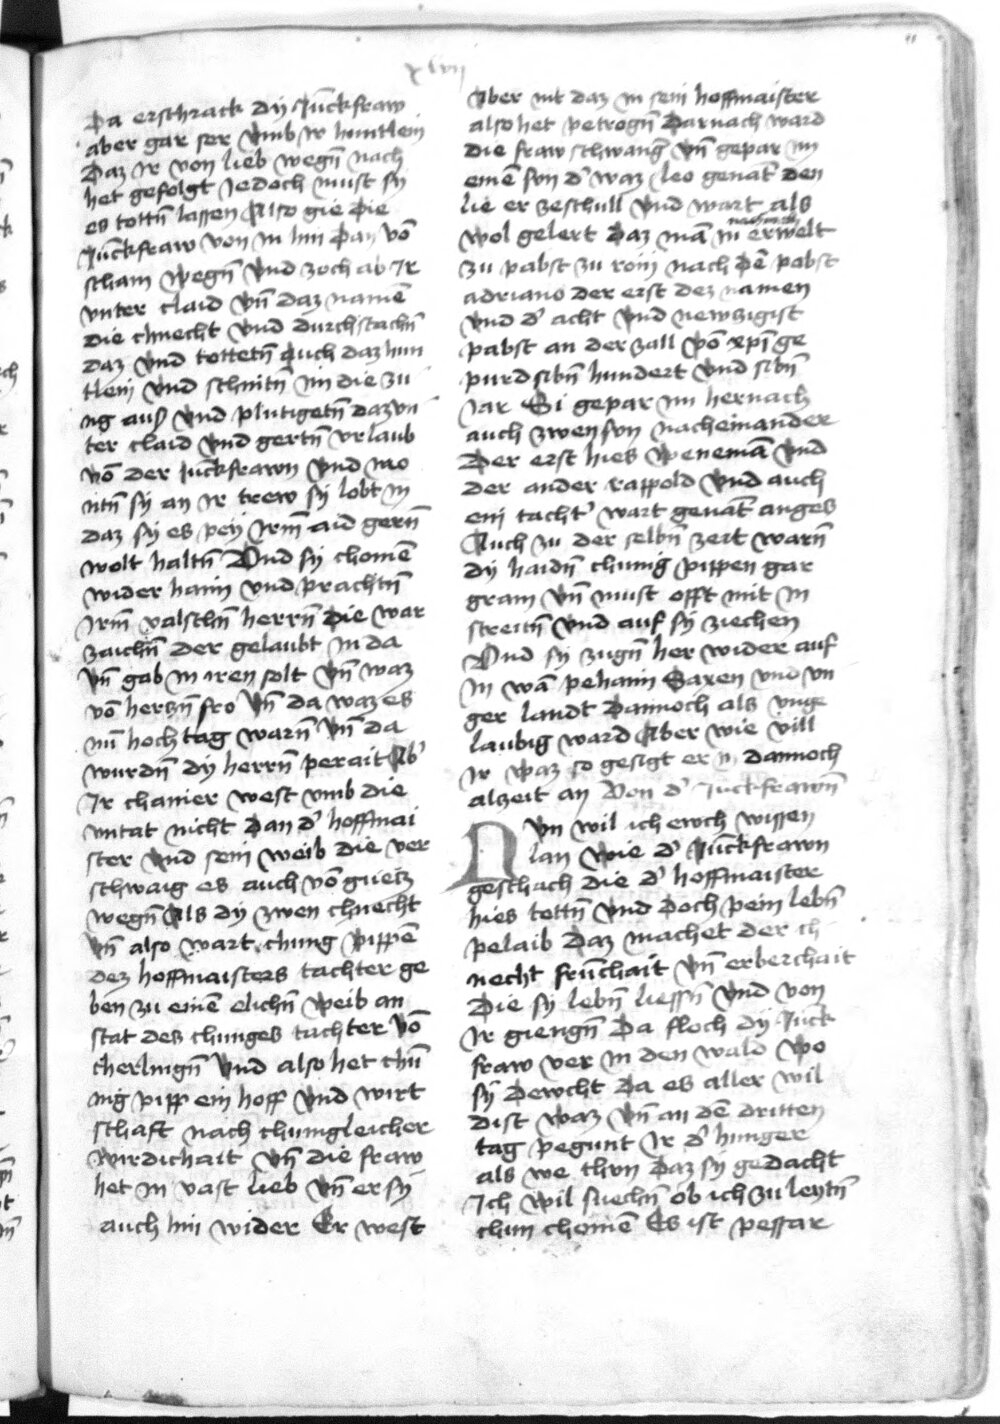 xlvii
91
Da erschrack dÿ Jūckfraw
aber gar ser vmb Jr huntlein
Daz Jr von lieb wegn̄ nach
het gefolgt Jedoch must sÿ
es tottn̄ lassen Also gie die
Jūckfraw von in hin dan vō
scham wegn̄ vnd zoch ab Jr
vnter claid vn̄ daz namē
die chnecht vnd durchstachn̄
daz vnd tottetn̄ auch daz hun
tlein vnd schnitn̄ im die zu
ng auß vnd plutigetn̄ daz vn̄
ter claid vnd gertn̄ vrlaub
vō der Juckfrawn vnd mo
ntn̄ sÿ an Jr trew sÿ lobt in
daz sÿ es peÿ Jrm̄ aid gern̄
wolt haltn̄ Vnd sÿ chomē
wider haim vnd prachtn̄
Jrm̄ valschn̄ herrn̄ die war
zaichn̄ der gelaubt in da
vn̄ gab in iren solt vn̄ waz
vō herczn̄ fro vn̄ da waz es
nū hoch tag warn̄ vn̄ da
wurdn̄ dÿ herrn̄ perait Ab'
Jr chainer west vmb die
vntat nicht dan d' hoffmai
ster vnd sein weib die ver
schwaig es auch vō guetz
wegn̄ Als dÿ zwen chnecht
vn̄ also wart chung pippē
dez hoffmaisters tachter ge
ben zu einē elichn̄ weib an
stat des chunges tachter vō
cherlingn̄ vnd also het chū
nig pipp ein hoff vnd wirt
schaft nach chunigleicher
wirdichait vn̄ die fraw
het in vast lieb vn̄ er sÿ
auch hin wider Er west
Aber nit daz in sein hoffmaister
also het petrogn̄ Darnach ward
die fraw schwang' vn̄ gepar im
einē sun d' waz leo genāt den
lie er ze schull vnd wart als
wol gelert daz mā in nachmals erwelt
zu pabst zu rom nach dē pabst
adriano der erst dez namen
vnd d' acht vnd newzigist
pabst an der zall vō xp̄i ge
purd sibn̄ hundert vnd sibn̄
Jar Si gepar im hernach
auch zwen sun nacheinander
Der erst hies wenemā vnd
der ander rappold vnd auch
ein tacht' wart genāt anges
Auch zu der selbn̄ zeit warn̄
dÿ haidn̄ chunig pippen gar
gram vn̄ must offt mit in
streitn̄ vnd auf sÿ ziechen
Vnd sÿ zugn̄ her wider auf
in wā pehaim Saxen vnd vn
ger landt dannoch als vnge
laubig ward Aber wie vill
Jr waz so gesigt er in dannoch
alzeit an Von d' Juckfrawn̄
Nvn wil ich ewch wissen
lan wie d' Jūckfrawn
geschach die d' hoffmaister
hies tottn̄ vnd doch pein lebn̄
pelaib Daz machet der ch
necht frūchait vn̄ erberchait
Die sÿ lebn̄ liessn̄ vnd von
Jr giengn̄ Da floch dÿ Juck
fraw ver in den wald wo
sÿ dewcht da es aller wil
dist waz vn̄ an dē dritten
tag pegunt Jr d' hunger
als we thun daz sÿ gedacht
Ich wil suechn̄ ob ich zu leytn̄
chun chomē Es ist pessar